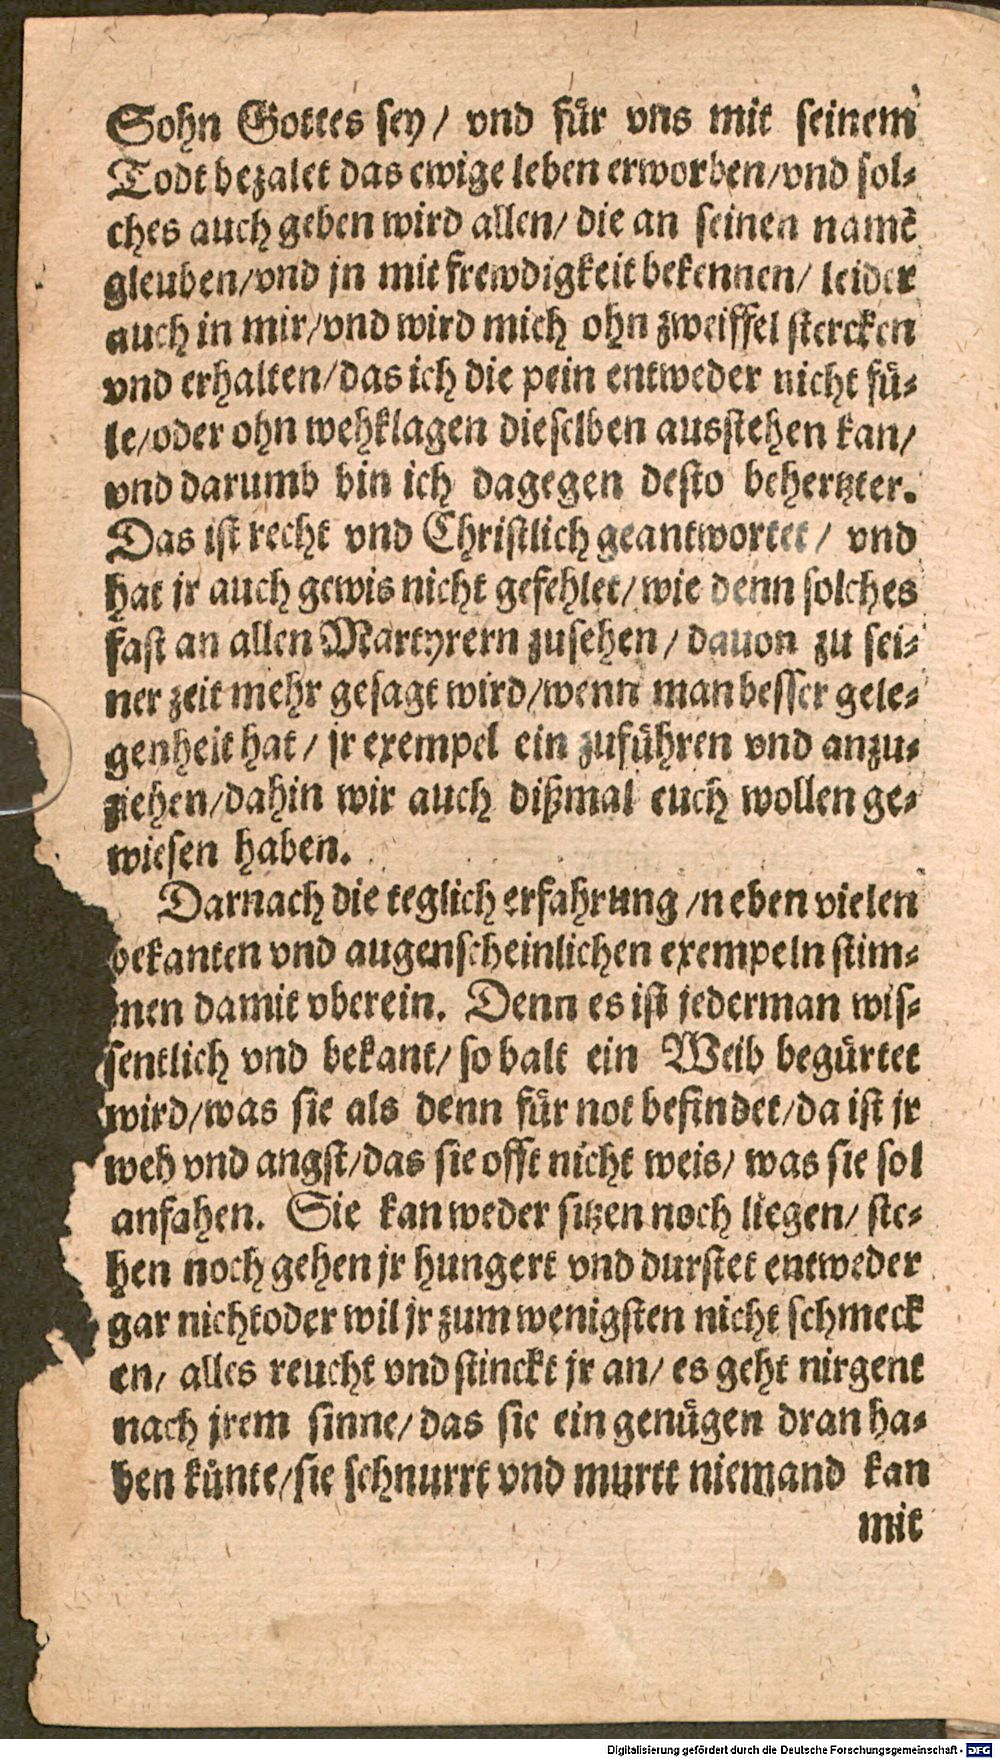 Sohn Gottes sey/ vnd für vns mit seinem
Todt bezalet das ewige leben erworben/vnd sol-
ches auch geben wird allen/ die an seinen namẽ
gleuben/vnd jn mit frewdigkeit bekennen/ leider
auch in mir/vnd wird mich ohn zweiffel stercken
vnd erhalten/das ich die pein entweder nicht fü-
le/oder ohn wehklagen dieselben ausstehen kan/
vnd darumb bin ich dagegen desto behertzter.
Das ist recht vnd Christlich geantwortet/ vnd
hat jr auch gewis nicht gefehlet/wie denn solches
fast an allen Martyrern zusehen/ dauon zu sei-
ner zeit mehr gesagt wird/wenn man besser gele-
genheit hat/ jr exempel ein zuführen vnd anzu-
ziehen/dahin wir auch dißmal euch wollen ge-
wiesen haben.
Darnach die teglich erfahrung /neben vielen
bekanten vnd augenscheinlichen exempeln stim-
men damit vberein. Denn es ist jederman wis-
sentlich vnd bekant/ so balt ein Weib begürtet
wird/was sie als denn für not befindet/da ist jr
weh vnd angst/das sie offt nicht weis/ was sie sol
anfahen. Sie kan weder sitzen noch liegen/ ste-
hen noch gehen jr hungert vnd durstet entweder
gar nicht oder wil jr zum wenigsten nicht schmeck
en/ alles reucht vnd stinckt jr an/ es geht nirgent
nach jrem sinne/das sie ein genügen dran ha-
ben künte/sie schnurrt vnd murtt niemand kan
mit
Digitalisierung gefördert durch die Deutsche Forschungsgemeinschaft - DFG